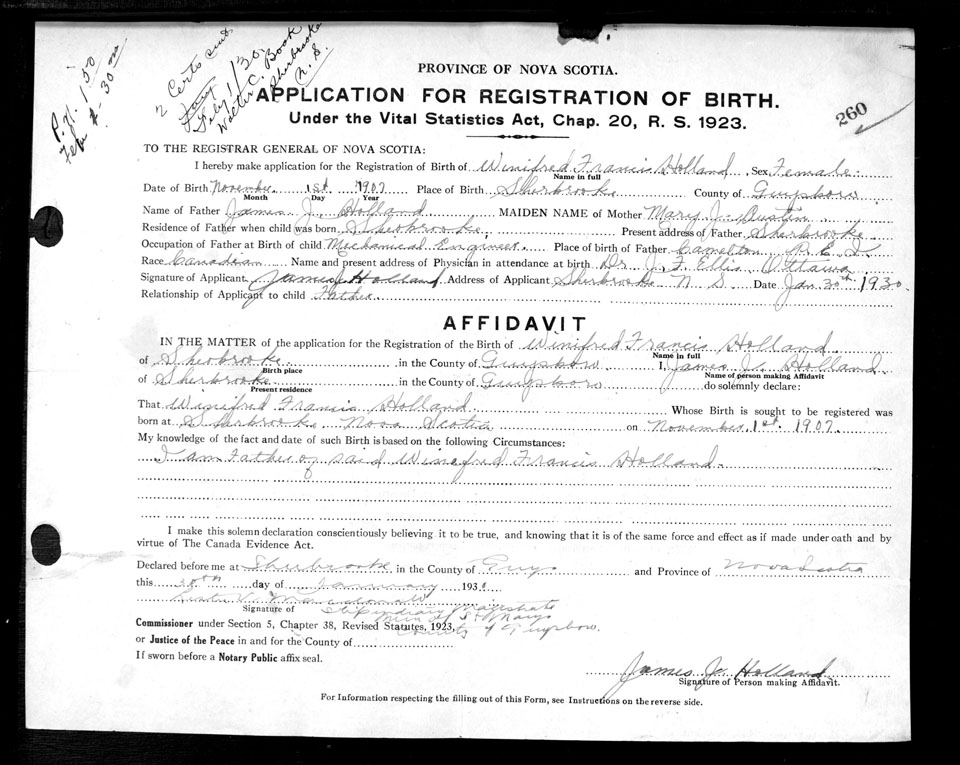 P.d. 1.50
Feb 4 - 30
2 Certs sent
Feby 1/30.
Walter C. Book
Sherbrooke
N. S.
260
PROVINCE OF NOVA SCOTIA.
APPLICATION FOR REGISTRATION OF BIRTH.
Under the Vital Statistics Act, Chap. 20, R. S. 1923.
TO THE REGISTRAR GENERAL OF NOVA SCOTIA:
I hereby make application for the Registration of Birth of Winifred Francis Holland, Sex Female
Name in full
Date of Birth November 1st 1907 Place of Birth Sherbrooke County of Guysboro
Month Day Year
Name of Father James J. Holland MAIDEN NAME of Mother Mary J. Austin
Residence of Father when child was born Sherbrooke, Present address of Father Sherbrooke
Occupation of Father at Birth of child Mechanical Engineer. Place of birth of Father P. E. I
Race Canadian Name and present address of Physician in attendance at birth Dr J. F. Ellis Ottawa
Signature of Applicant James J Holland Address of Applicant Sherbrooke N S Date Jan 30th 1930.
Relationship of Applicant to child Father
AFFIDAVIT
IN THE MATTER of the application for the Registration of the Birth of Winifred Francis Holland.
Name in full
of Sherbrooke in the County of Guysboro I, James J. Holland
Birth place Name of person making Affidavit
of Sherbrooke in the County of Guysboro do solemnly declare:
Present residence
That Winifred Francis Holland Whose Birth is sought to be registered was
born at Sherbrooke Nova Scotia on November 1st. 1907.
My knowledge of the fact and date of such Birth is based on the following Circumstances:
I am Father of said Winefred Francis Holland.
I make this solemn declaration conscientiously believing it to be true, and knowing that it is of the same force and effect as if made under oath and by
virtue of The Canada Evidence Act.
Declared before me at Sherbrooke in the County of Guys and Province of Nova Scotia
this 30th day of January 1930
Signature of Stipendiary Magistrate
Mun of St Marys
Commissioner under Section 5, Chapter 38, Revised Statutes, 1923, County of Guysboro.
or Justice of the Peace in and for the County of
If sworn before a Notary Public affix seal.
James J. Holland
Signature of Person making Affidavit.
For Information respecting the filling out of this Form, see Instructions on the reverse side.